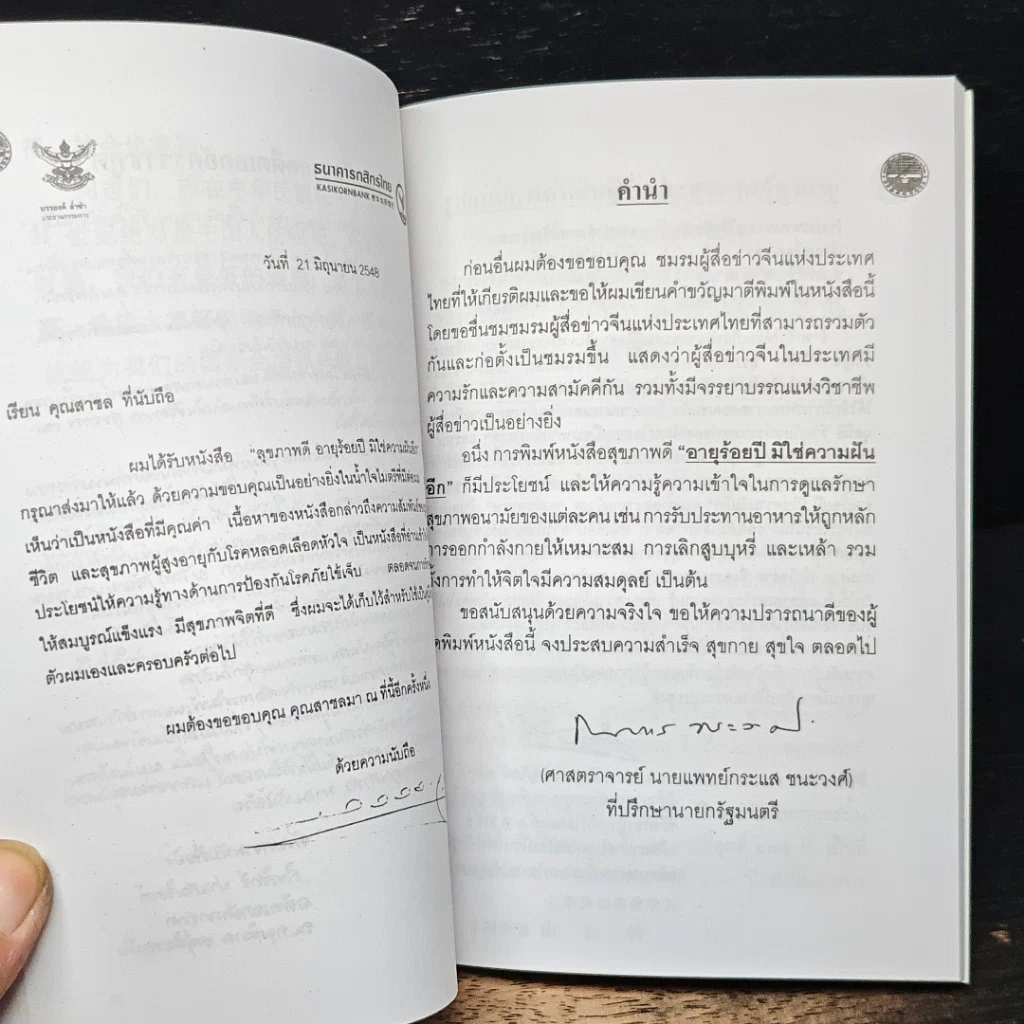 ธนาคารกสิกรไทย
KASIKORNBANK
บรรยงค์ ล่ำซำ
ประธานกรรมการ
วันที่ 21 มิถุนายน 2548
เรียน คุณสาชล ที่นับถือ
ผมได้รับหนังสือ "สุขภาพดี อายุร้อยปี มิใช่ความฝันอีก"
กรุณาส่งมาให้แล้ว ด้วยความขอบคุณเป็นอย่างยิ่งในน้ำใจไมตรีที่มีต่อ
เห็นว่าเป็นหนังสือที่มีคุณค่า เนื้อหาของหนังสือกล่าวถึงความสัมพันธ์
ชีวิต และสุขภาพผู้สูงอายุกับโรคหลอดเลือดหัวใจ เป็นหนังสือที่อ่าน
ประโยชน์ให้ความรู้ทางด้านการป้องกันโรคภัยไข้เจ็บ ตลอดจน
ให้สมบูรณ์แข็งแรง มีสุขภาพจิตที่ดี ซึ่งผมจะได้เก็บไว้สำหรับใช้
ตัวผมเองและครอบครัวต่อไป
ผมต้องขอขอบคุณ คุณสาชลมา ณ ที่นี้อีกครั้งหนึ่ง
ด้วยความนับถือ
คำนำ
ก่อนอื่นผมต้องขอขอบคุณ ชมรมผู้สื่อข่าวจีนแห่งประเทศ
ไทยที่ให้เกียรติผมและขอให้ผมเขียนคำขวัญมาตีพิมพ์ในหนังสือนี้
โดยขอชื่นชมชมรมผู้สื่อข่าวจีนแห่งประเทศไทยที่สามารถรวมตัว
กันและก่อตั้งเป็นชมรมขึ้น แสดงว่าผู้สื่อข่าวจีนในประเทศมี
ความรักและความสามัคคีกัน รวมทั้งมีจรรยาบรรณแห่งวิชาชีพ
ผู้สื่อข่าวเป็นอย่างยิ่ง
อนึ่ง การพิมพ์หนังสือสุขภาพดี "อายุร้อยปี มิใช่ความฝัน
อีก" ก็มีประโยชน์ และให้ความรู้ความเข้าใจในการดูแลรักษา
สุขภาพอนามัยของแต่ละคน เช่น การรับประทานอาหารให้ถูกหลัก
การออกกำลังกายให้เหมาะสม การเลิกสูบบุหรี่ และเหล้า รวม
ทั้งการทำให้จิตใจมีความสมดุลย์ เป็นต้น
ขอสนับสนุนด้วยความจริงใจ ขอให้ความปรารถนาดีของผู้
จัดพิมพ์หนังสือนี้ จงประสบความสำเร็จ สุขกาย สุขใจ ตลอดไป
(ศาสตราจารย์ นายแพทย์กระแส ชนะวงศ์)
ที่ปรึกษานายกรัฐมนตรี